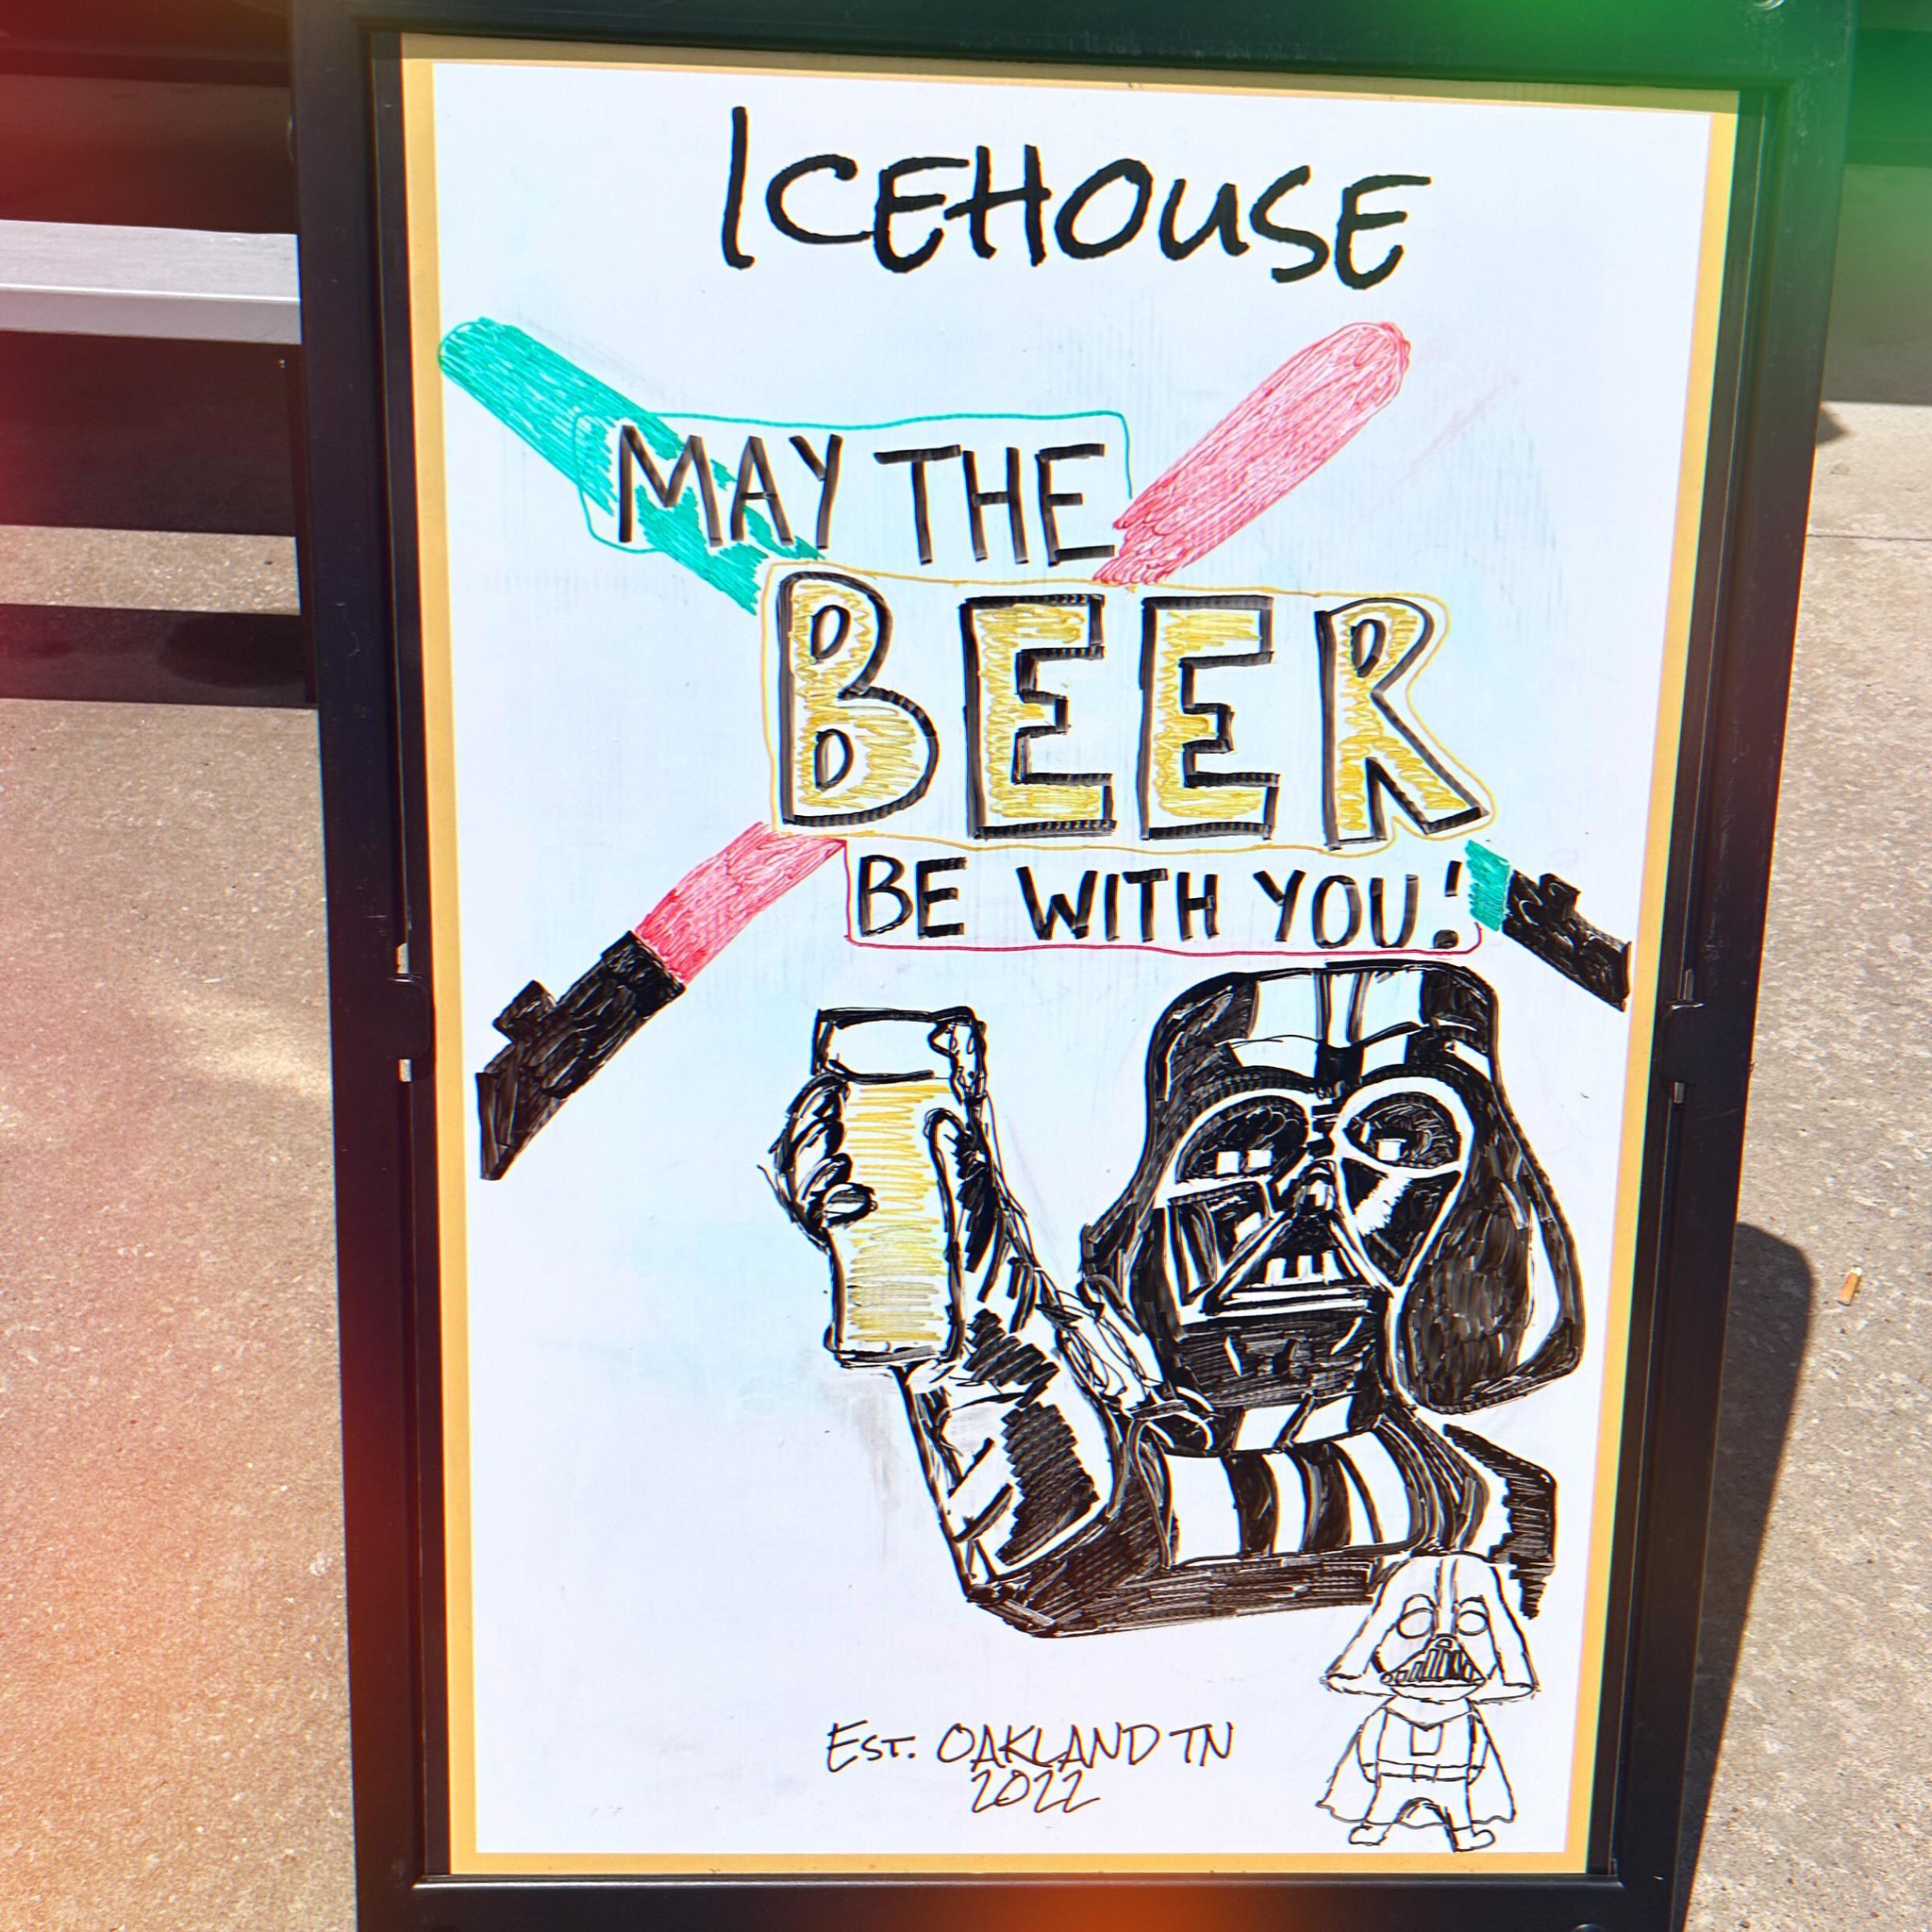 ICEHOUSE
MAY THE
BEER
BE WITH YOU!
EST. OAKLAND TN
2022